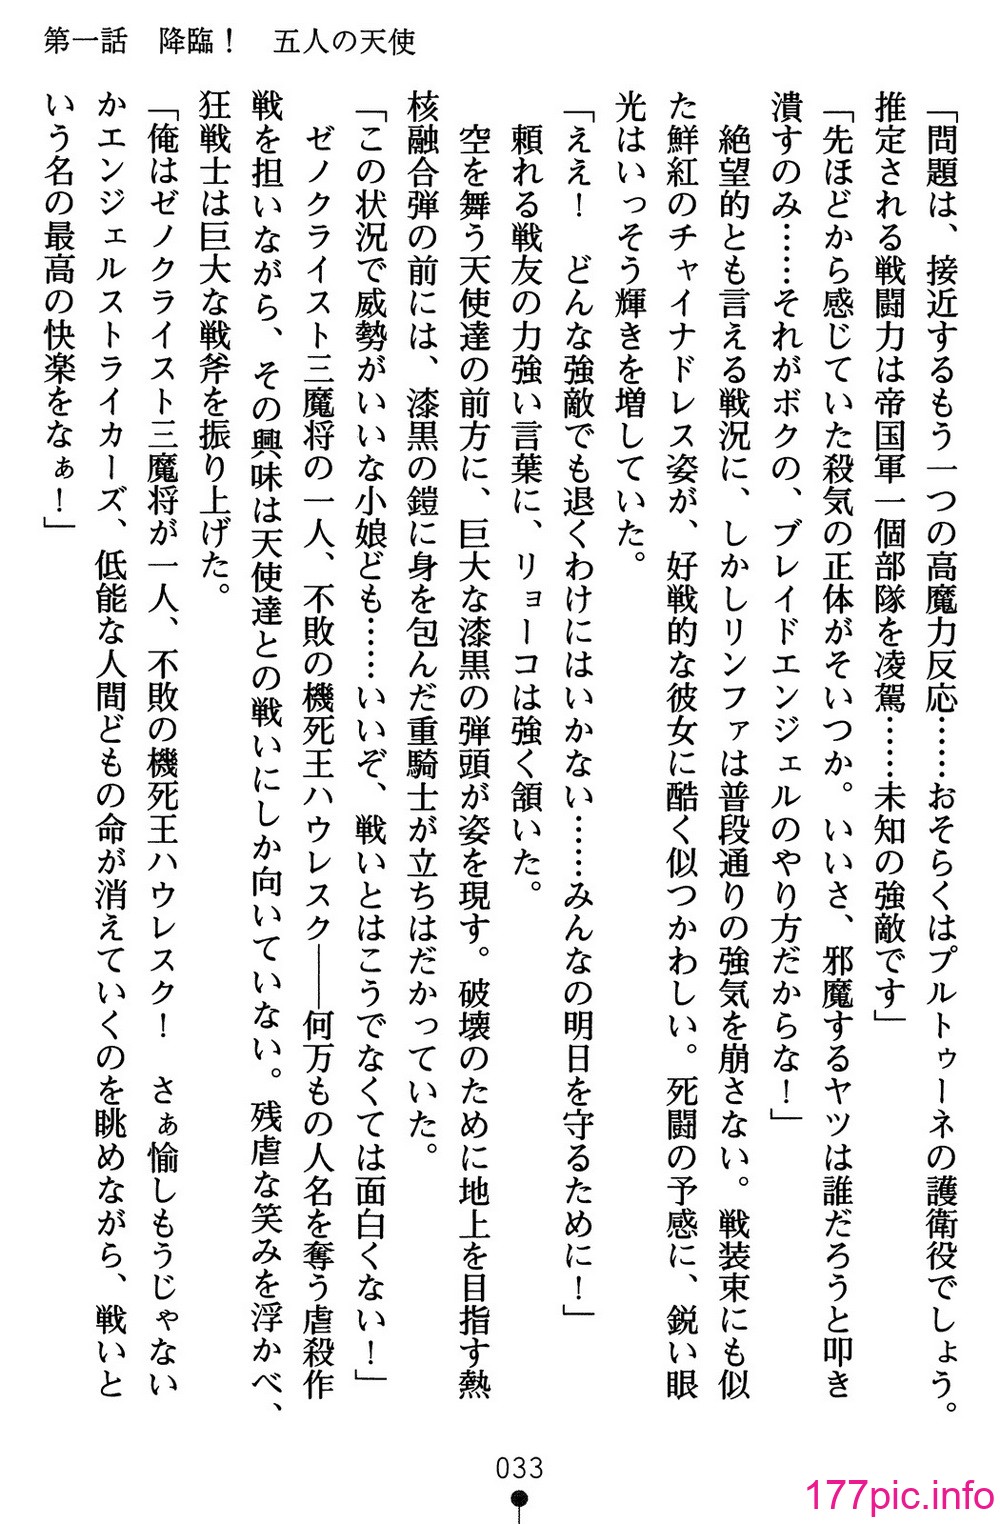 第一話　降臨！　五人の天使
「問題は、接近するもう一つの高魔力反応……おそらくはプルトゥーネの護衛役でしょう。
推定される戦闘力は帝国軍一個部隊を凌駕……未知の強敵です」
「先ほどから感じていた殺気の正体がそいつか。いいさ、邪魔するヤツは誰だろうと叩き
潰すのみ……それがボクの、ブレイドエンジェルのやり方だからな！」
　絶望的とも言える戦況に、しかしリンファは普段通りの強気を崩さない。戦装束にも似
た鮮紅のチャイナドレス姿が、好戦的な彼女に酷く似つかわしい。死闘の予感に、鋭い眼
光はいっそう輝きを増していた。
「ええ！　どんな強敵でも退くわけにはいかない……みんなの明日を守るために！」
　頼れる戦友の力強い言葉に、リョーコは強く頷いた。
　空を舞う天使達の前方に、巨大な漆黒の弾頭が姿を現す。破壊のために地上を目指す熱
核融合弾の前には、漆黒の鎧に身を包んだ重騎士が立ちはだかっていた。
「この状況で威勢がいいな小娘ども……いいぞ、戦いとはこうでなくては面白くない！」
　ゼノクライスト三魔将の一人、不敗の機死王ハウレスク――何万もの人名を奪う虐殺作
戦を担いながら、その興味は天使達との戦いにしか向いていない。残虐な笑みを浮かべ、
狂戦士は巨大な戦斧を振り上げた。
「俺はゼノクライスト三魔将が一人、不敗の機死王ハウレスク！　さぁ愉しもうじゃない
かエンジェルストライカーズ、低能な人間どもの命が消えていくのを眺めながら、戦いと
いう名の最高の快楽をなぁ！」
033
177pic.info